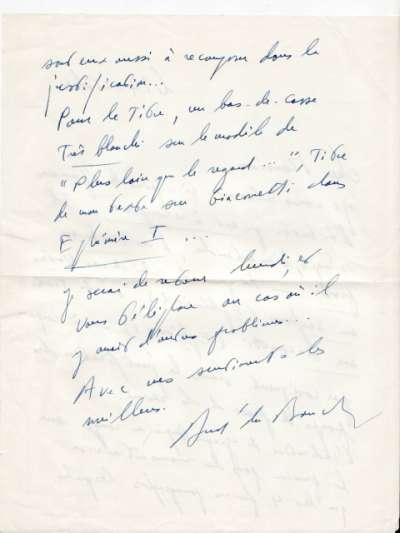 sont eux aussi à recomposer dans la
justification...
Pour le Titre, un bas-de-casse
Très blanchi sur le modèle de
"Plus loin que le regard...", Titre
de mon texte sur Giacometti dans
Ephémère I ...
je serai de retour lundi, et
vous téléphone au cas où il
y aurait d'autres problèmes...
Avec mes sentiments les
meilleurs.
André du Bouchet